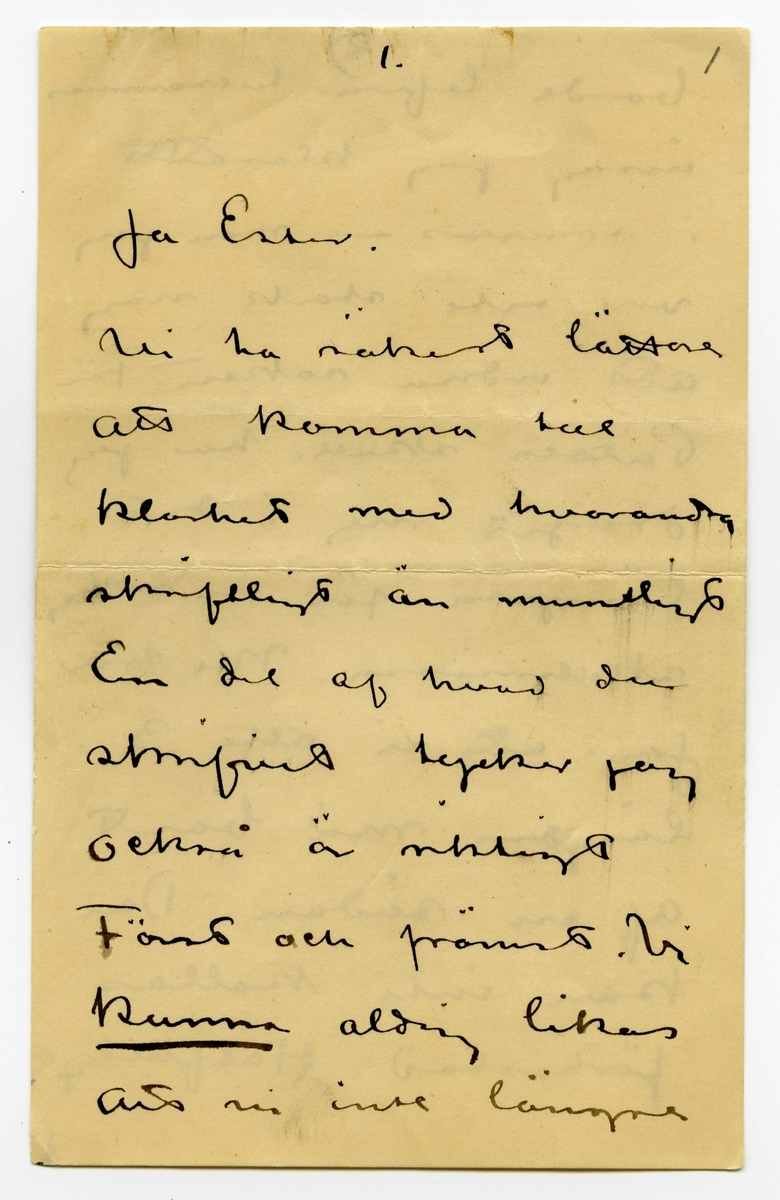 1. /
Ja Ester.
Vi ha säkert lättare
att komma till
klarhet med hvarandra
skriftligt än muntligt
En del af hvad du
skrifvit tycker jag
också är riktigt
Först och främst. Vi
kunna aldrig
att vi inte längre